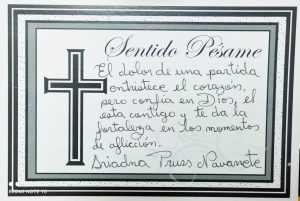 Sentido Pésame
El dolor de una partida
entristece el corazón,
pero confía en Dios, el
esta contigo y te da la
fortaleza en los momentos
de aflicción.
Ariadna Pruss Navarrete